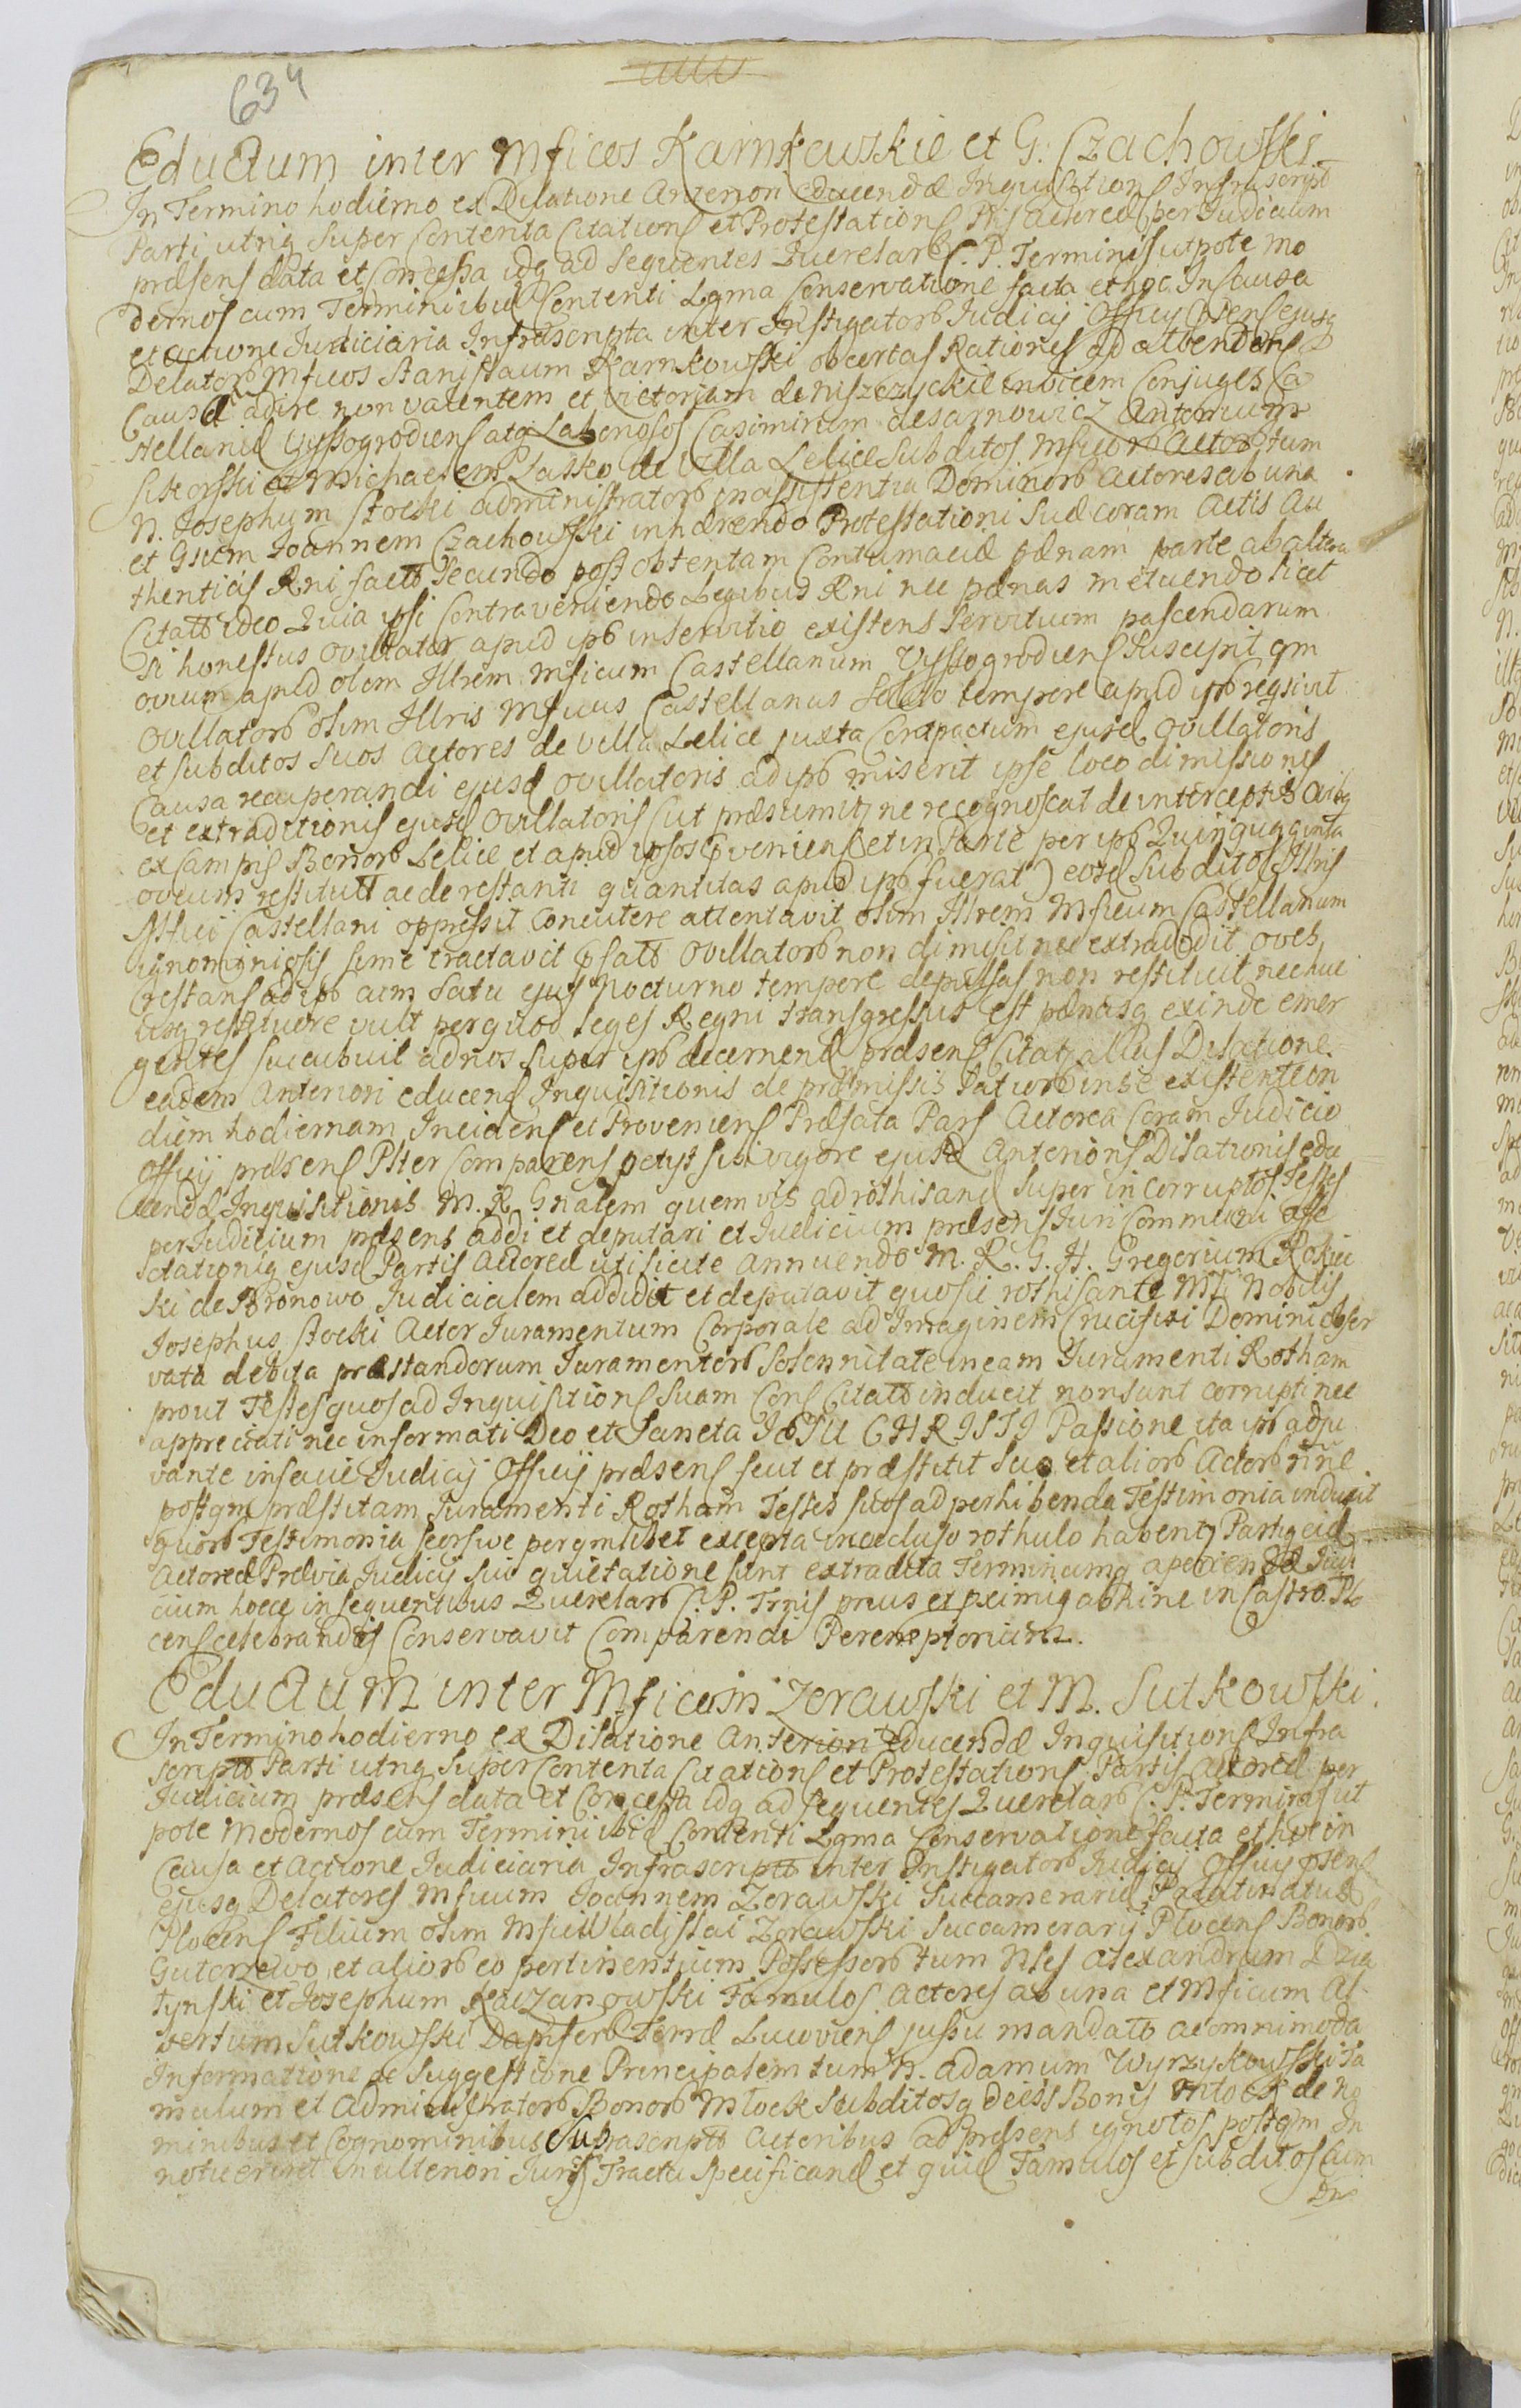 634
Eductum inter Mficos Karnkowskie et G. Czachowski
In Termino hodierno ex Dilatione Anteriori educendæ Inquisitionis Infrascript
Parti utriq super Contenta Citationis et Protestationis Ptis Actoreæ per Judicium
præsens data et Concessa idq ad sequentes Querelarb C. P. Terminis utpote mo
dernos cum Termini ibid Contenti Lgma Conservatione facta et hoc In causa
et actione Judiciaria Infrascripta inter Instigatorb Judicij Officij Psens ejusq
Delatorb Mficos Stanislaum Karnkowski ob certas Rationes ad attendens
Causæ adire non valentem et Victoriam de Niszczyckie invicem Conjuges Ca
stellanid Vyssogrodiens atq Laboriosos Casimirum desarnowicz Antonium
Sikorski et Michaelem Lasko de Villa Lelice Subditos Mficorb Actorb tum
N. Josephum Stocki administratorb in assistentia Dominorb Actores ab una
et Gnem Joannem Czachowski inhærendo Protestationi suæ coram Actis Au
thenticis Rni factb Secundo post obtentam Contumaciæ pænam parte ab altera
Citatb ideo Quia ipsi Contraveniendo Legibus Rni nec pænas metuendo licet
si honestus ovillator apud ipb inservitio existens servitium pascendarum
ovium apud olim Illrem Mficum Castellanum Vyssogrodiens suscepit qm
Ovillatorb olim Illris Mficus Castellanus solito tempore apud ipb reqsivit
et subditos suos Actores de Villa Lelice juxta Compactum ejusd Ovillatoris
Causa recuperandi ejusd Ovillatoris ad ipb miserit ipse loco dimissionis
et extraditionis ejusd Ovillatoris (ut præsumitz ne recognoscat de interceptis ovibq
ex Campis Bonorb Lelice et apud ipsos pveniens et in Parte per ipb Quinquaginta
ovium restitutt ac de restanti quantitas apud ipb fuerat) eosd Subditos Illris
Mfici Castellani oppressit Concutere attentavit olim Illrem Mficum Castellanum
ignominiosis sime tractavit psatb Ovillatorb non dimisit nec extradidit oves
restans ad ipb cum satu ejus Nocturno tempore depulsas non restituit nec huc
usq restituere vult per quod leges Regni transgressus est pænasq exinde emer
gentes succubuit ad nos super ipb decernend præsens Citatz allus Dilatione
eadem anteriori educens Inquisitionis de præmissis Latiorb inse existente on
diem hodiernam Incidens et Proveniens Præfata Pars Actorea Coram Judicio
Officij præsens Plter Comparens petijt sibi vigore ejusd Anterioris Dilationis edu
cendæ Inquisitionis M. R. Gnalem quemvis ad rothisand super incorruptos Testes
per Judicium præsens addi et deputari et Judicium præsens Juri Communi affe
ctationiq ejusd Partis Actoreæ uti licite annuendo M. R. G. H. Gregorium Rokic
ki de Bronowo Judicialem addidit et deputavit quo sic rothisante MR Nobilis
Josephus Stocki Actor Juramentum Corporale ad Imaginem Crucifixi Domini obser
vata debita præstandorum Juramentorb Solennitate in eam Juramenti Rotham
prout Testes quos ad Inquisitions suam Cons Citatb inducit non sunt corrupti nec
appreciati nec informati Deo et Sancta JESU CHRISTI Passione ita ipb adju
vante in facie Judicij Officij præsens seut et præstitit suo et aliorb Actorb nine
postqm præstitam Juramenti Rotham Testes suos ad perhibenda Testimonia induxit
quorb Testimonia seorsive per qmlibet excepta in occluso rothulo habentz Partiq eid
Actoreæ Prævia Judicij sui quietatione sunt extradita Terminumq aperiendæ Judi
cium hocce in sequentibus Querelarb C. P. Trnis prius et pximiq abhinc in Castro Plo
cens celebrandis Conservavit Comparendi Peremptorium.
Eductum inter Mficum Zerawski et M. Sutkowski.
In Termino hodierno ex Dilatione Anteriori Educendæ Inquisitionis Infra
scriptb Parti utriq super Contenta Citationis et Protestationis Partis Actoreæ per
Judicium præsens data et Concessa idq ad sequentes Querelarb C. P. Terminos ut
pote Modernos cum Termini ibid Contenti Lgma Conservatione facta et hoc in
Causa et actione Judiciaria Infrascriptb inter Instigatorb Judicij Officij psens
ejusq Delatores Mficum Joannem Zerawski Succamerarid Palatinatus
Plocens Filium olim Mfici Vladislai Zerawski Succamerarij Plocens Bonorb
Gutorzewo et aliorb eo pertinentium Possessorb tum Nles Alexandrum Dzia
tynski et Josephum Raczanowski Famulos Actores ab una et Mficum Al
bertum Sutkowski Dapiferb Terræ Lucoviens jussu mandatb ac omnimoda
Informatione ac suggestione Principalem tum N. Adamum Wyrzykowski Fa
mulum et Administratorb Bonorb Mlock Subditosq de iis Bonis Mlock de No
minibus et Cognominibus Suprascriptb Actoribus ad Præsens ignotos postqm In
notuerint in ulteriori Juris Tractu Specificand et quid Famulos et Subditos Cum
In